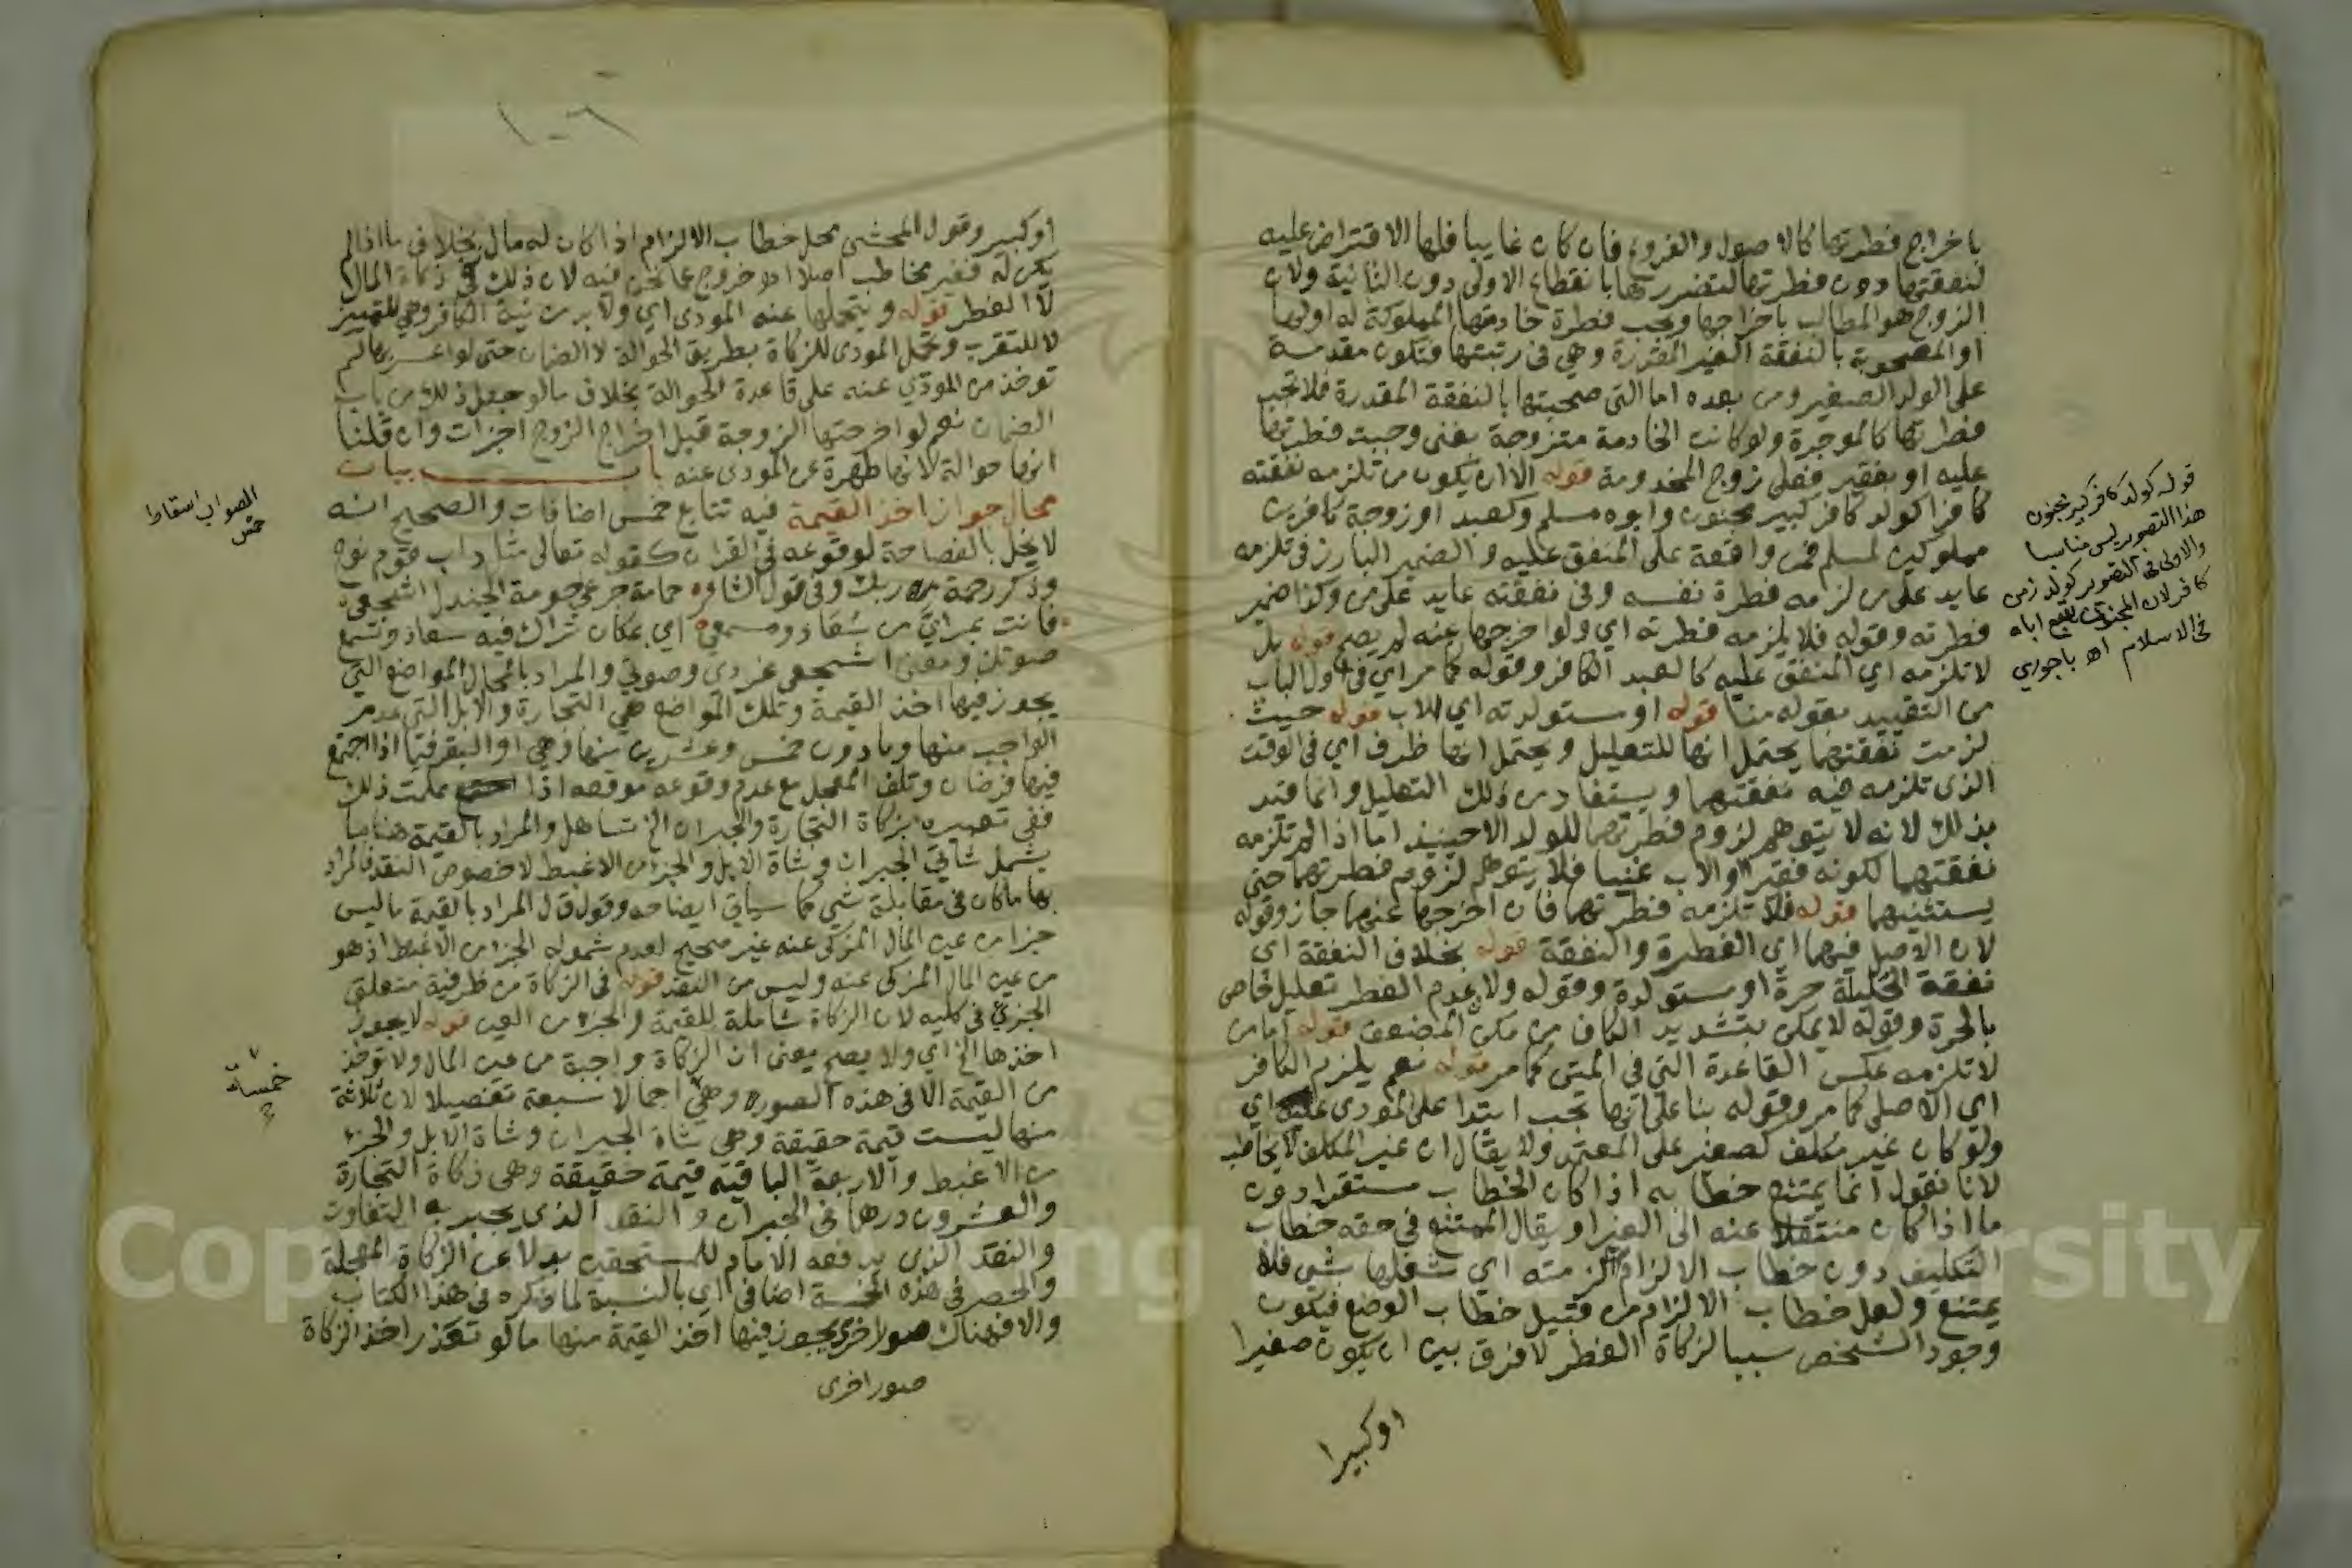 باخراج فطرتها كالاصول والفروع فان كان غايبا فلها الاقتراض عليه
لنفقتها دون فطرتها لتضررها بانقطاع الاولى دون الثانية ولان
الزوج هو المطالب باخراجها ويجب فطرة خادمتها المملوكة له او لها
او المصحوبة بالنفقة الغير المقدرة وهي في رتبتها فتكون مقدمة
على الولد الصغير ومن بعده اما التي صحبتها بالنفقة المقدرة فلا تجب
فطرتها كالموجرة ولو كانت الخادمة متزوجة بغنى وجبت فطرتها
عليه او بفقير فعلى زوج المخدومة قوله الا ان يكون من تلزمه نفقته
كافرا كولد كافر كبير مجنون وابوه مسلم وكعبد او زوجة كافرين
مملوكين لمسلم فمن واقعة على المنفق عليه والضمير البارز في تلزمه
عايد على من لزمه فطرة نفسه وفي نفقته عايد على من وكذا ضمير
فطرته وقوله فلا يلزمه فطرته اي ولو اخرجها عنه لم يصح قوله بل
لا تلزمه اي المنفق عليه كالعبد الكافر وقوله كما مر اي في اول الباب
من التقييد بقوله منا قوله او مستولدته اي للاب قوله حيث
لزمت نفقتهما يحتمل انها للتعليل ويحتمل انها ظرف اي في الوقت
الذي تلزمه فيه نفقتهما ويستفاد من ذلك التعليل وانما قيد
بذلك لانه لا يتوهم لزوم فطرتهما للولد الا حينيذ اما اذا لم تلزمه
نفقتهما لكونه فقيرا او الاب غنيا فلا يتوهم لزوم فطرتهما حتى
يستثنيهما قوله فلا تلزمه فطرتهما فان اخرجها عنهما جاز وقوله
لان الاصل فيهما اي الفطرة والنفقة قوله بخلاف النفقة اي
نفقة الحليلة حرة او مستولدة وقوله ولان عدم الفطر تعليل خاص
بالحرة وقوله لا يمكن بتشديد الكاف من مكن المضعف قوله اما من
لا تلزمه عكس القاعدة التي في المتن كما مر قوله نعم يلزم الكافر
اي الاصلي كما مر وقوله بنا على انها تجب ابتدا على المودى عنه اي
ولو كان غير مكلف كصغير على المعتمد ولا يقال ان غير المكلف لا يخاطب
لانا نقول انما يمتنع خطابه اذا كان الخطاب مستقرا دون
ما اذا كان منتقلا عنه الى الغير او يقال الممتنع في حقه خطاب
التكليف دون خطاب الالزام لزمته اي شغلها بشي فلا
يمتنع ولعل خطاب الالزام من قبيل خطاب الوضع فيكون
وجود الشخص سببا لزكاة الفطر لا فرق بين ان يكون صغيرا
او كبيرا
قوله كولد كافر كبير مجنون
هذا التصوير ليس مناسبا
والاولى في التصوير كولد زمن
كافر لان المجنون يتبع اباه
في الاسلام اهـ باجوري
او كبير وقول المحشى محل خطاب الالزام اذا كان له مال بخلاف ما اذا لم
يكن له فغير مخاطب اصلا اهـ خروج عما نحن فيه لان ذلك في زكاة المال
لا الفطر قوله ويتحملها عنه المودى اي ولا بد من نية الكافر وهي للتمييز
لا للتقرب وتحمل المودى للزكاة بطريق الحوالة لا الضمان حتى لو اعسر بها لم
توخذ من المودي عنه على قاعدة الحوالة بخلاف ما لو جعل ذلك من باب
الضمان نعم لو اخرجتها الزوجة قبل اخراج الزوج اجزات وان قلنا
انها حوالة لانها طهرة عن المودى عنه باب بيان
محال جواز اخذ القيمة فيه تتابع خمس اضافات والصحيح انه
لا يخل بالفصاحة لوقوعه في القران كقوله تعالى مثل داب قوم نوح
وذكر رحمة ربك وفي قول الشاعر حمامة جرعى حومة الجندل اسجعي
فانت بمراي من سعاد ومسمع اي بمكان تراك فيه سعاد وتسمع
صوتك ومعنى اسجعي غردي وصوتي والمراد بالمحال المواضع التي
يجوز فيها اخذ القيمة وتلك المواضع هي التجارة والابل التي عدم
الواجب منها وما دون خمس وعشرين منها وهي او البقر فيما اذا اجتمع
فيها فرضان وتلف المعجل مع عدم وقوعه موقعه اذا علمت ذلك
ففي تعبيره بزكاة التجارة والجبران الخ تساهل والمراد بالقيمة هنا ما
يشمل شاتي الجبران وشاة الابل والجزء من الاغبط لا خصوص النقد فالمراد
بها ما كان في مقابلة شي كما سياتي ايضاحه وقول ق ل المراد بالقيمة ما ليس
جزا من عين المال المزكى عنه غير صحيح لعدم شموله الجزء من الاغبط اذ هو
من عين المال المزكى عنه وليس من النقد قوله في الزكاة من ظرفية متعلق
الجزئي في كليه لان الزكاة شاملة للقيمة والجزء من العين قوله لا يجوز
اخذها الخ اي ولا يصح بمعنى ان الزكاة واجبة من عين المال ولا توخذ
من القيمة الا في هذه الصور وهي اجمالا سبعة تفصيلا لان ثلاثة
منها ليست قيمة حقيقة وهي شاة الجبران وشاة الابل والجزء
من الاغبط والاربعة الباقية قيمة حقيقة وهي زكاة التجارة
والعشرون درهما في الجبران والنقد الذي يجبر به التفاوت
والنقد الذي يدفعه الامام للمستحقين بدلا عن الزكاة المعجلة
والحصر في هذه الخمسة اضافي اي بالنسبة لما ذكره في هذا الكتاب
والا فهناك صور اخرى يجوز فيها اخذ القيمة منها ما لو تعذر اخذ الزكاة
صور اخرى
الصواب اسقاط
خمس
خمسة
Copyright King Saud University